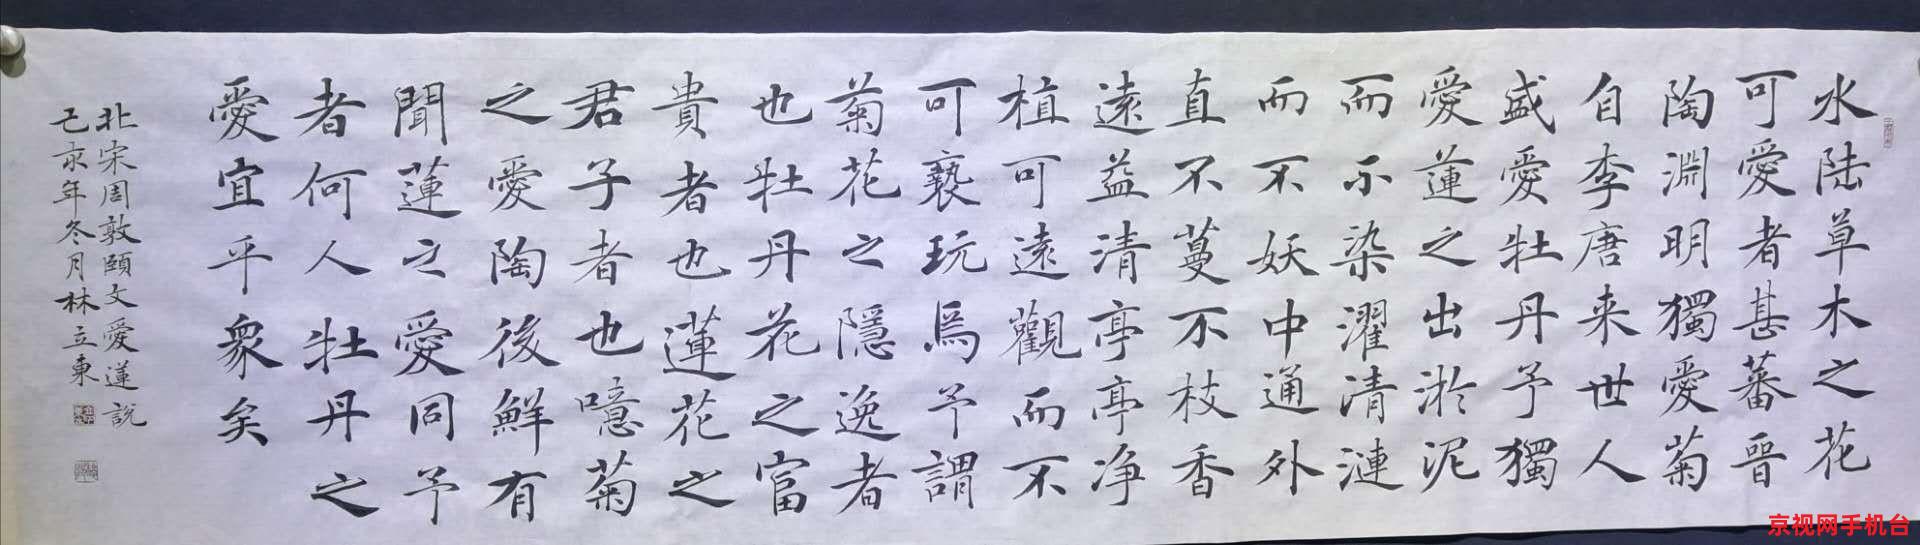 水陆草木之花
可愛者甚蕃晉
陶淵明獨愛菊
自李唐来世人
盛愛牡丹予獨
愛蓮之出淤泥
而不染濯清漣
而不妖中通外
直不蔓不枝香
遠益清亭亭净
植可遠觀而不
可褻玩焉予謂
菊花之隱逸者
也牡丹花之富
貴者也蓮花之
君子者也噫菊
之愛陶後鮮有
聞蓮之愛同予
者何人牡丹之
愛宜乎衆矣
北宋周敦頤文愛蓮説
己亥年冬月林立東
京视网手机台